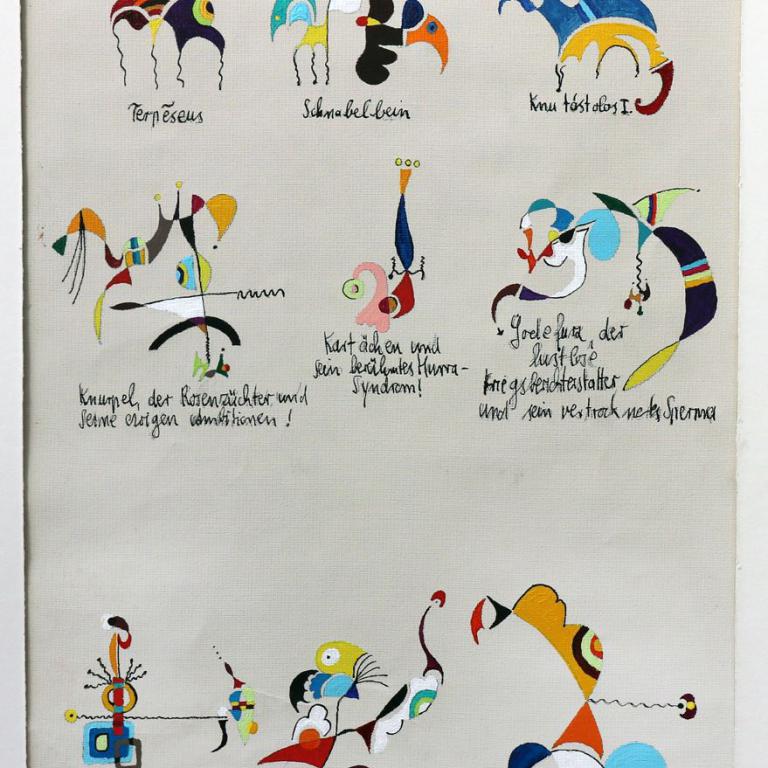 Terpēseus
Schnabelbein
Knu tóstolos I.
Knurpel, der Rosenzüchter und
seine ewigen Ambitionen!
Kartächen und
sein berühmtes Hurra-
Syndrom!
der
lustlose
Kriegsberichterstatter
und sein vertrocknetes Sperma